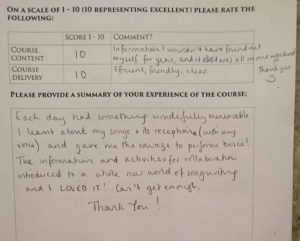 ON A SCALE OF 1 - 10 (10 REPRESENTING EXCELLENT) PLEASE RATE THE
FOLLOWING:
SCORE 1 - 10 COMMENT?
COURSE CONTENT 10 Information I wouldn't have found out
myself for years, and it was all in one weekend
Thank you
COURSE DELIVERY 10 Efficient, friendly, clear
PLEASE PROVIDE A SUMMARY OF YOUR EXPERIENCE OF THE COURSE:
Each day had something wonderfully memorable
I learnt about my songs + its reception (with my
voice) and gave me the courage to perform twice!
The information and activities for collaboration
introduced to a whole new world of songwriting
and I LOVED IT! Can't get enough.
Thank You!